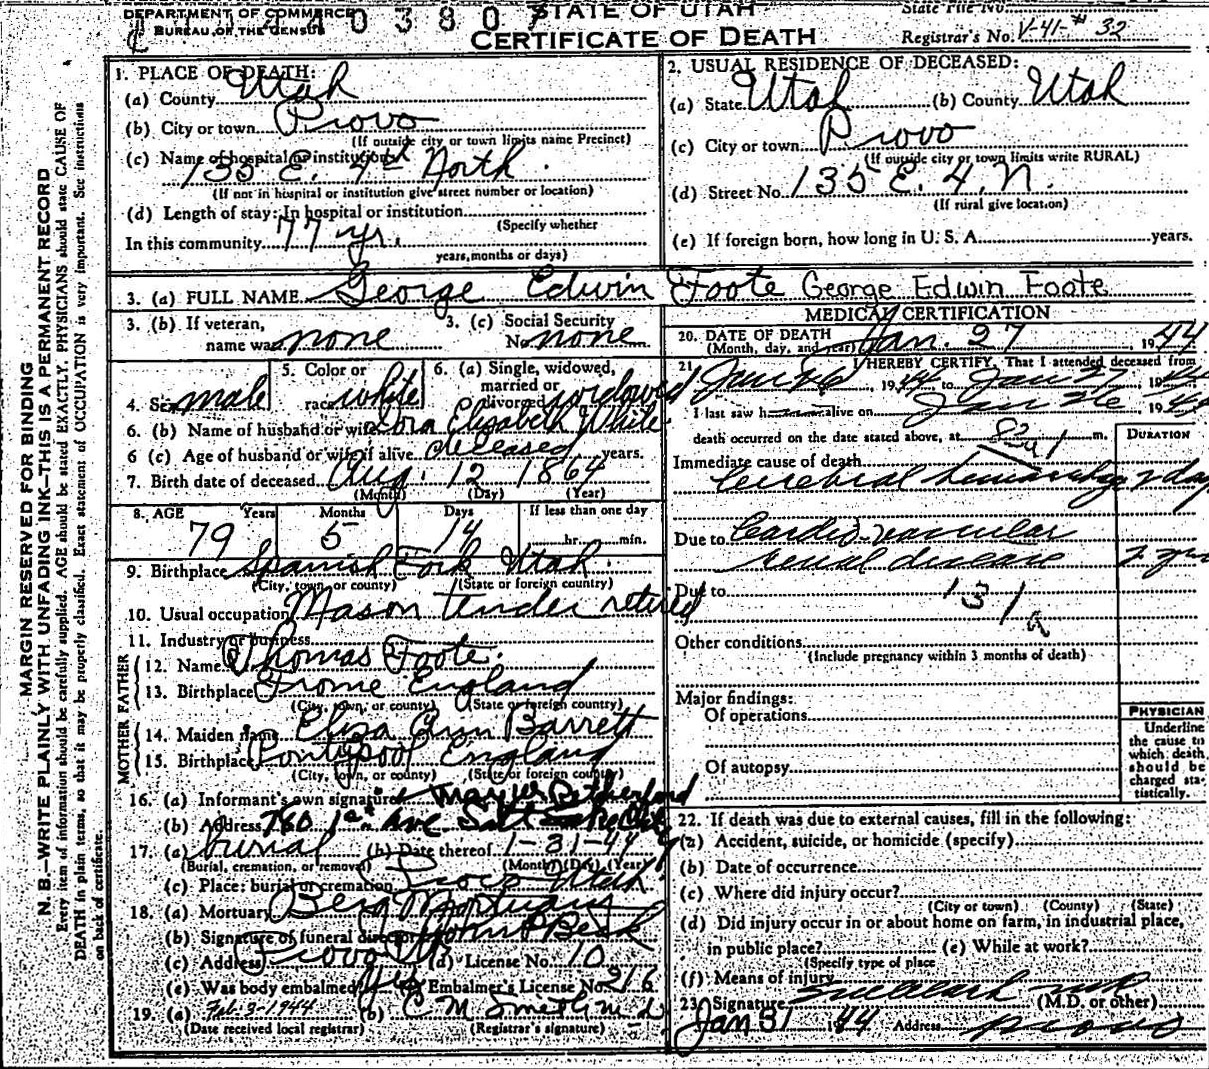 DEPARTMENT OF COMMERCE
BUREAU OF THE CENSUS
0380
STATE OF UTAH
CERTIFICATE OF DEATH
State File No.
Registrar's No. V-41-#32
MARGIN RESERVED FOR BINDING
N. B.—WRITE PLAINLY WITH UNFADING INK—THIS IS A PERMANENT RECORD
Every item of information should be carefully supplied. AGE should be stated EXACTLY. PHYSICIANS should state CAUSE OF
DEATH in plain terms, so that it may be properly classified. Exact statement of OCCUPATION is very important. See instructions
on back of certificate.
1. PLACE OF DEATH:
(a) County Utah
(b) City or town Provo
(If outside city or town limits name Precinct)
(c) Name of hospital or institution
135 E. 4th North
(If not in hospital or institution give street number or location)
(d) Length of stay: In hospital or institution
(Specify whether
In this community 77 yr.
years, months or days)
2. USUAL RESIDENCE OF DECEASED:
(a) State Utah (b) County Utah
(c) City or town Provo
(If outside city or town limits write RURAL)
(d) Street No. 135 E. 4. N.
(If rural give location)
(e) If foreign born, how long in U. S. A. years.
3. (a) FULL NAME George Edwin Foote George Edwin Foote
3. (b) If veteran,
name war none
3. (c) Social Security
No. none
4. Sex male
5. Color or
race white
6. (a) Single, widowed,
married or
divorced widowed
6. (b) Name of husband or wife Elizabeth White
6 (c) Age of husband or wife if alive deceased years.
7. Birth date of deceased Aug. 12 1864
(Month) (Day) (Year)
8. AGE Years Months Days If less than one day
79 5 14 hr. min.
9. Birthplace Spanish Fork Utah
(City, town, or county) (State or foreign country)
10. Usual occupation Mason tender retired
11. Industry or business
FATHER
12. Name Thomas Foote
13. Birthplace Frome England
(City, town, or county) (State or foreign country)
MOTHER
14. Maiden name Eliza Ann Barrett
15. Birthplace Pontypool England
(City, town, or county) (State or foreign country)
16. (a) Informant's own signature
(b) Address 780 1st Ave Salt Lake City
17. (a) burial (b) Date thereof 1-31-44
(Burial, cremation, or removal) (Month) (Day) (Year)
(c) Place: burial or cremation Provo Utah
18. (a) Mortuary Berg Mortuary
(b) Signature of funeral director
(c) Address Provo (d) License No. 10
(e) Was body embalmed Embalmer's License No. 216
19. (a) Feb-3-1944 (b) C M Smith
(Date received local registrar) (Registrar's signature)
MEDICAL CERTIFICATION
20. DATE OF DEATH Jan. 27, 1944
(Month, day, and year)
21. I HEREBY CERTIFY, That I attended deceased from
Jan 26, 1944 to Jan 27, 1944
I last saw h alive on Jan 26, 1944
death occurred on the date stated above, at m.
DURATION
Immediate cause of death
Cerebral hemorrhage 2 day
Due to Cardio-vascular
renal disease 2 yrs
Due to 131a
Other conditions
(Include pregnancy within 3 months of death)
Major findings:
Of operations
Of autopsy
PHYSICIAN
Underline
the cause to
which death
should be
charged sta-
tistically.
22. If death was due to external causes, fill in the following:
(a) Accident, suicide, or homicide (specify)
(b) Date of occurrence
(c) Where did injury occur?
(City or town) (County) (State)
(d) Did injury occur in or about home on farm, in industrial place,
in public place? (e) While at work?
(Specify type of place
(f) Means of injury
23. Signature (M.D. or other)
Jan 31 1944 Address Provo